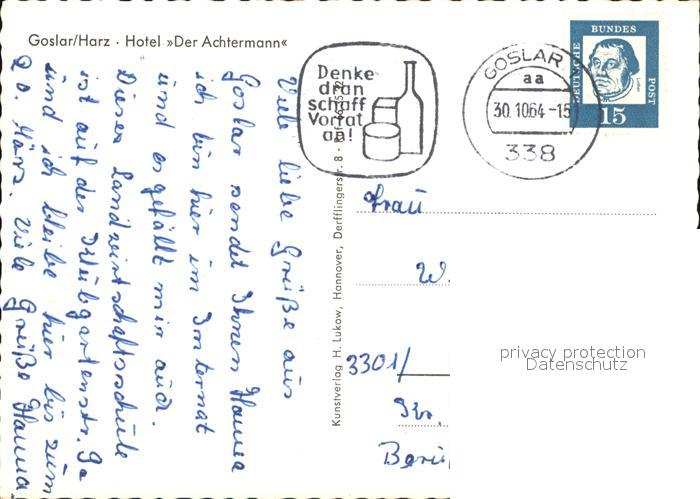 Goslar/Harz · Hotel »Der Achtermann«
Denke
dran
schaff
Vorrat
an!
GOSLAR
aa
30.10.64-15
338
DEUTSCHE
BUNDES
POST
15
Viele liebe Grüße aus
Goslar sendet Ihnen Hanna
ich bin hier im Internat
und es gefällt mir auch.
Diese Landwirtschaftsschule
ist auf der
und ich bleibe hier bis zum
20. März. Viele Grüße Hanna
Kunstverlag H. Lukow, Hannover, Derfflingerstr. 8
Frau
W.
3301/
Kr.
privacy protection
Datenschutz